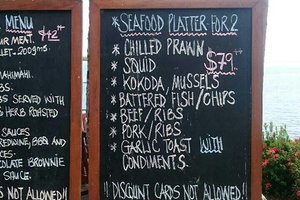 MENU
UR MEAT.
LLET - 200gms.
$42
MAHIMAHI.
BS.
BS SERVED WITH
& HERB ROASTED
SAUCES
REDWINE, BBQ AND
CES
OCOLATE BROWNIE
SAUCE.
S NOT ALLOWED!!
*SEAFOOD PLATTER FOR 2
* CHILLED PRAWN
$79
* SQUID
* KOKODA, MUSSELS
* BATTERED FISH/CHIPS
* BEEF/RIBS
* PORK/RIBS
* GARLIC TOAST WITH
CONDIMENTS.
!! DISCOUNT CARDS NOT ALLOWED!!